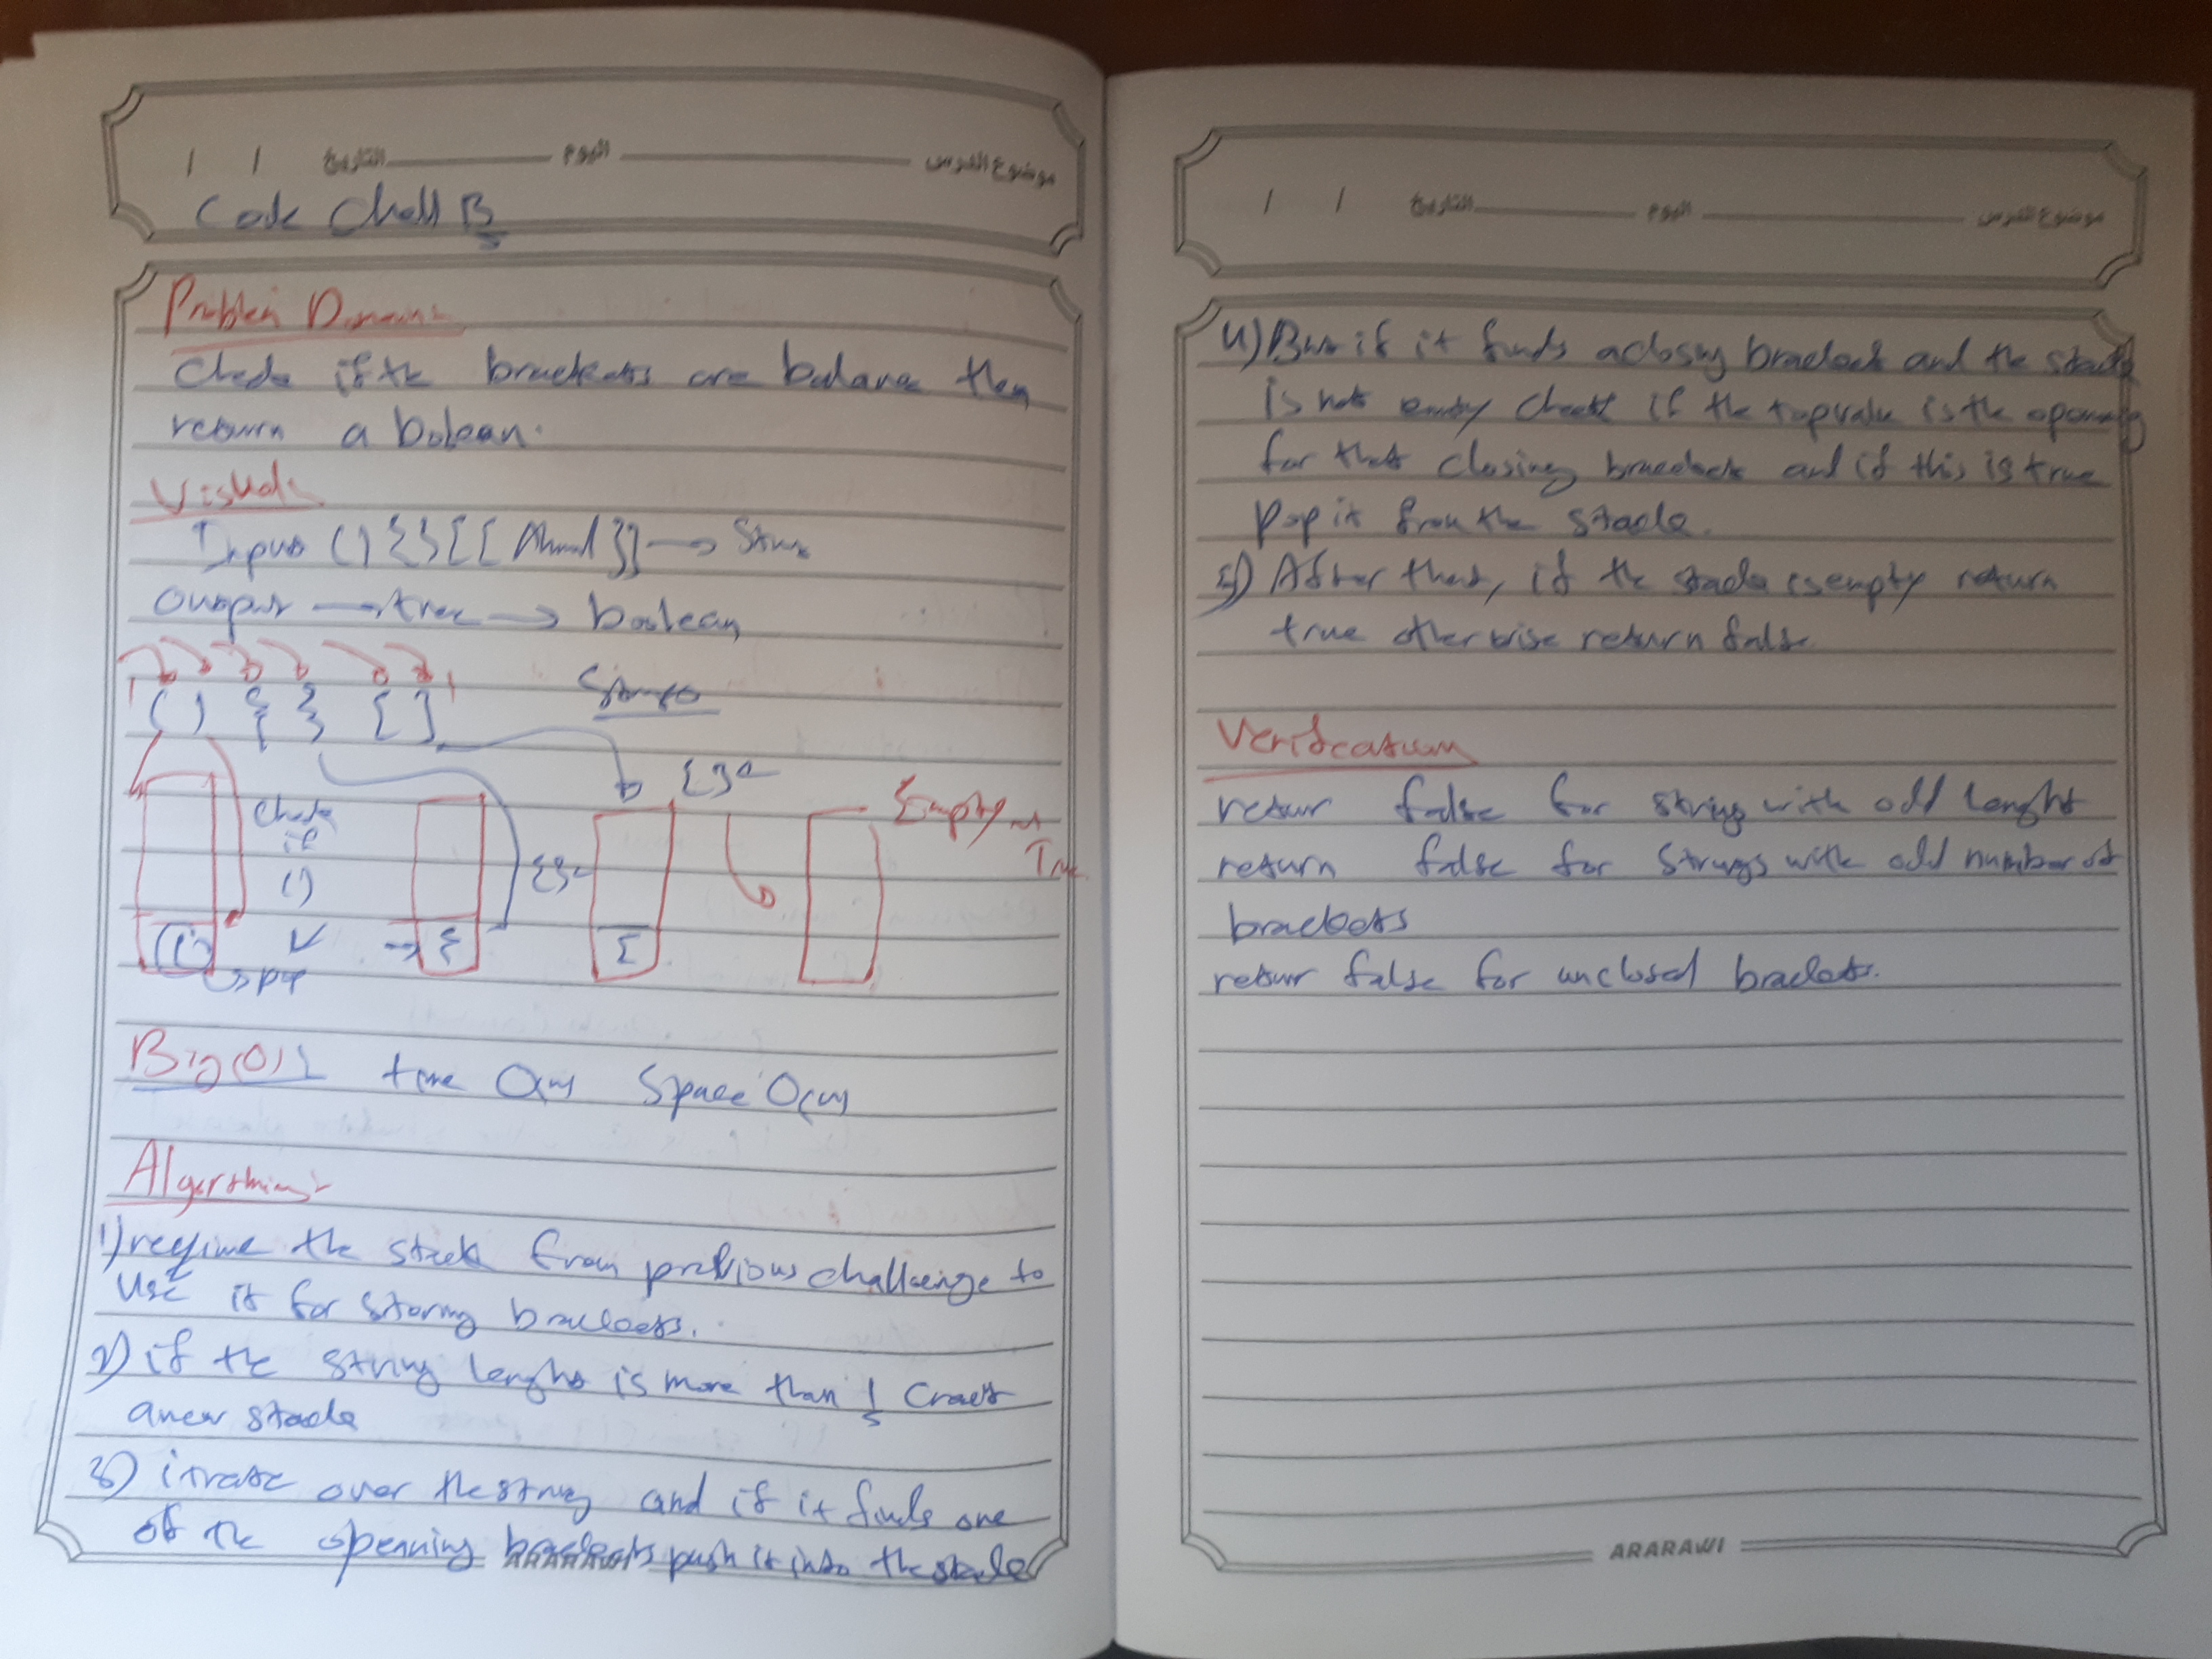 / / التاريخ اليوم موضوع الدرس
Code Chall 13
Problem Domain
check if the brackets are balance then
return a bolean.
Visual:
Input (){}[[Ahmad]] → String
output → true → boolean
( ) { } [ ]
check if
()
{}
[]
pop
Empty
True
Big O:
time O(n) Space O(n)
Algorithm:
1) require the stack from previous challenge to
use it for storing brackets.
2) if the string lenght is more than 1 creat
a new stack
3) itrate over the string and if it finds one
of the opening brackets push it into the stack
/ / التاريخ اليوم موضوع الدرس
4) But if it finds a closing bracket and the stack
is not emty check if the top value is the opening
for that closing bracket and if this is true
Pop it from the stack.
5) After that, if the stack is empty return
true otherwise return false.
Verification
retur false for string with odd lenght
return false for strings with odd number of
brackets
retur false for unclosed brackets.
ARARAWI